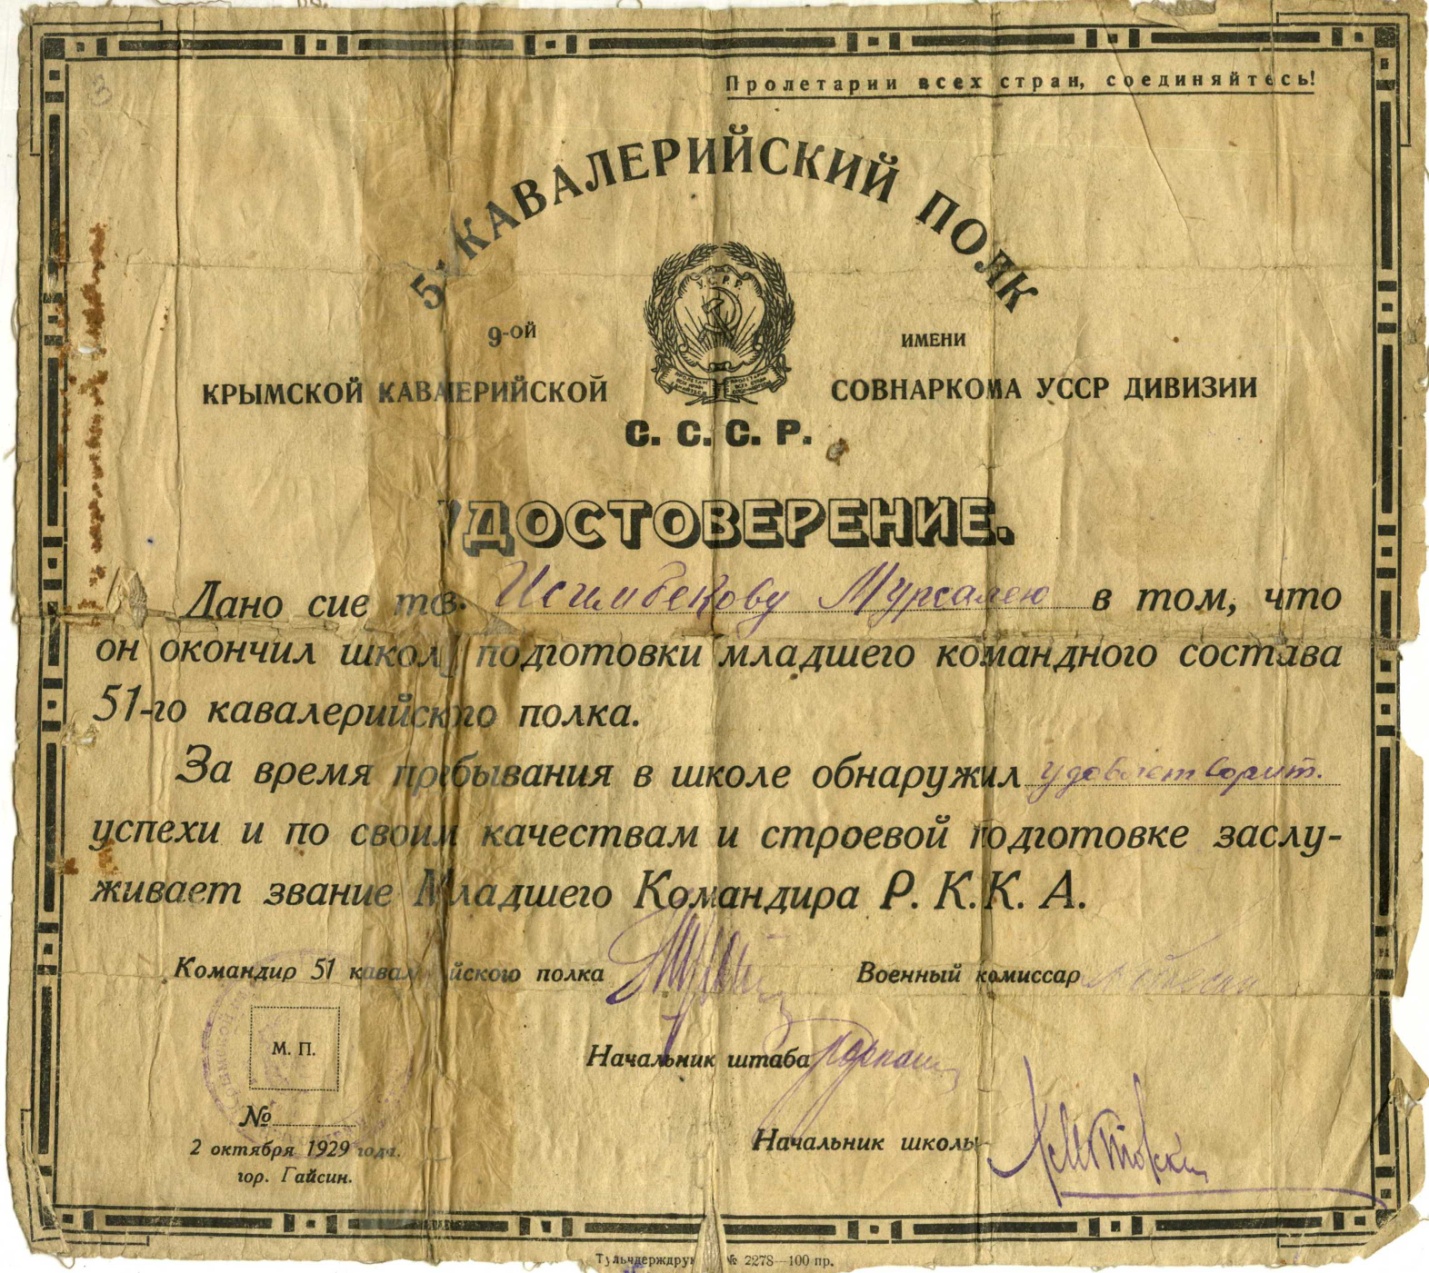 Пролетарии всех стран, соединяйтесь!
51 КАВАЛЕРИЙСКИЙ ПОЛК
9-ой
КРЫМСКОЙ КАВАЛЕРИЙСКОЙ
ИМЕНИ
СОВНАРКОМА УССР ДИВИЗИИ
С. С. С. Р.
УДОСТОВЕРЕНИЕ.
Дано сие тов. Исимбекову Мурсалею в том, что
он окончил школу подготовки младшего командного состава
51-го кавалерийского полка.
За время пребывания в школе обнаружил удовлетворит.
успехи и по своим качествам и строевой подготовке заслу-
живает звание Младшего Командира Р. К. К. А.
Командир 51 кавалерийского полка
Военный комиссар
М. П.
Начальник штаба
№
2 октября 1929 года.
Начальник школы
гор. Гайсин.
Тульчдерждрук № 2278—100 пр.